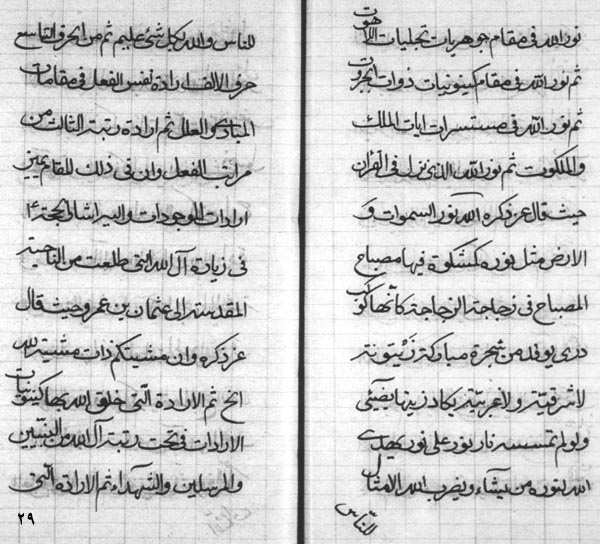 نور الله في مقام جوهريات تجليات اللاهوت
ثم نور الله في مقام كينونيات ذوات الجبروت
ثم نور الله في مستسرات ايات الملك
والملكوت ثم نور الله الذي نزل في القران
حيث قال عز ذكره الله نور السموات و
الارض مثل نوره كمشكوة فيها مصباح
المصباح في زجاجة الزجاجة كانها كوكب
دري يوقد من شجرة مباركة زيتونة
لا شرقية ولا غربية يكاد زيتها يضيئ
ولو لم تمسسه نار نور على نور يهدي
الله لنوره من يشاء ويضرب الله الامثال
للناس
للناس والله بكل شئ عليم ثم من الحرف التاسع
حرف الالف ارادة نفس الفعل في مقامات
المبادي والعلل ثم ارادة رتبة الثالث من
مراتب الفعل وان في ذلك المقام يميز
ارادات الموجودات واليه اشار الحجة ع
في زيارة آل الله التي طلعت من الناحية
المقدسة الى عثمان بن عمرو حيث قال
عز ذكره وان مشيتكم ذات مشية الله
الخ ثم الارادة التي خلق الله بها كينونيات
الارادات في تحت رتبة آل الله من النبيين
والمرسلين والشهداء ثم الارادة التي
٢٩